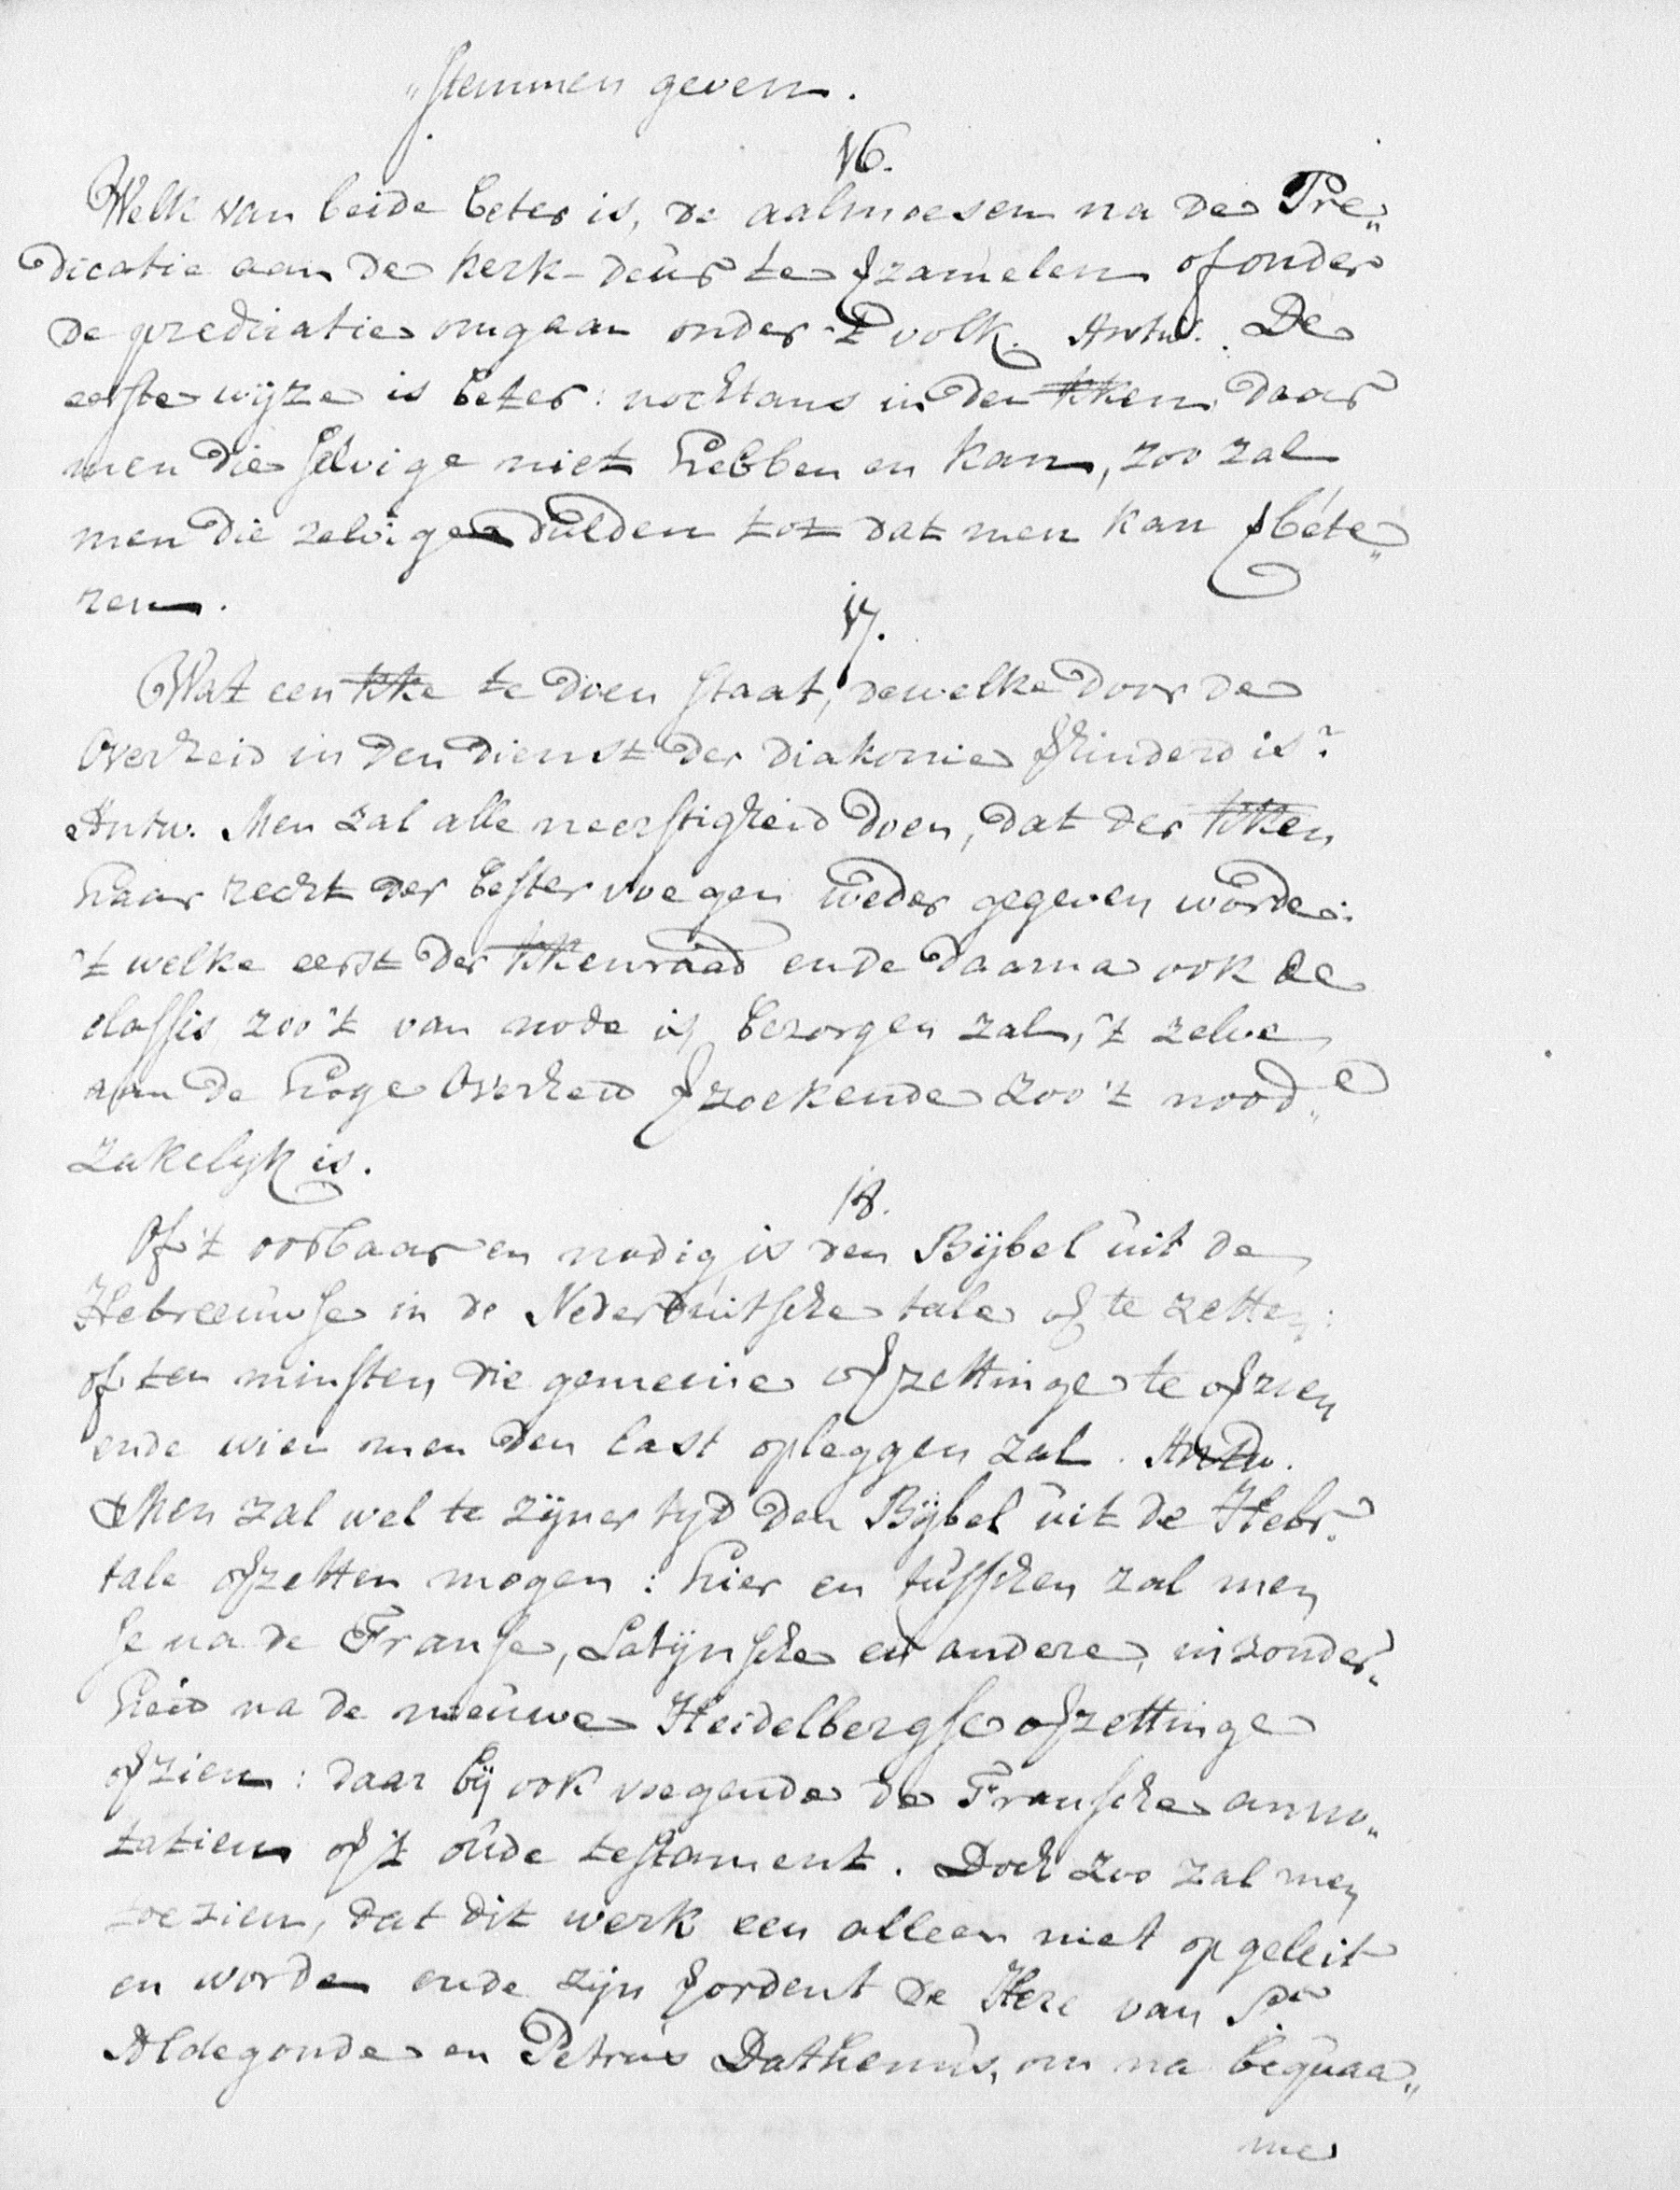 „stemmen geven.
16.
Welk van beide beter is, de aalmoesen na de Pre„
dicatie aan de kerk-deur te ꝟzamelen of onder
de predicatie omgaan onder 't volk. Antw. De
eerste wijze is beter: nochtans in den kken daar
men die selvige niet hebben en kan, zoo zal
men die zelvige dulden tot dat men kan ꝟbete„
ren.
17.
Wat een kke te doen staat, dewelke door de
Overheid in den dienst der diakonie ꝟhinderd is?
Antw. Men zal alle neerstigheid doen, dat der kken
haar recht der bester voegen weder gegeven worde:
't welke eerst der kkenraad ende daarna ook de
classis zoo 't van node is bezorgen zal, 't zelve
aan de hoge Overheid ꝟzoekende zoo 't nood„
zakelijk is.
18.
Of 't oorbaar en nodig is den Bijbel uit de
Hebreeuwse in de Nederduitsche tale oꝟ te zetten:
of ten minsten die gemeine oꝟzettinge te oꝟzien
ende wien men den last opleggen zal. Antw.
Men zal wel te zijner tijd den Bijbel uit de Hebr.
tale oꝟzetten mogen: hier en tusschen zal men
se na de Franse, Latijnsche en andere, inzonder„
heid na de nieuwe Heidelbergse oꝟzettinge
oꝟzien: daar bij ook voegende de Fransche anno„
tatien oꝟ 't oude testament. Doch zoo zal men
toezien, dat dit werk een alleen niet opgeleit
en worde ende zijn ꝟordent de Here van St.
Aldegonde en Petrus Dathenus, om na bequaa„
me